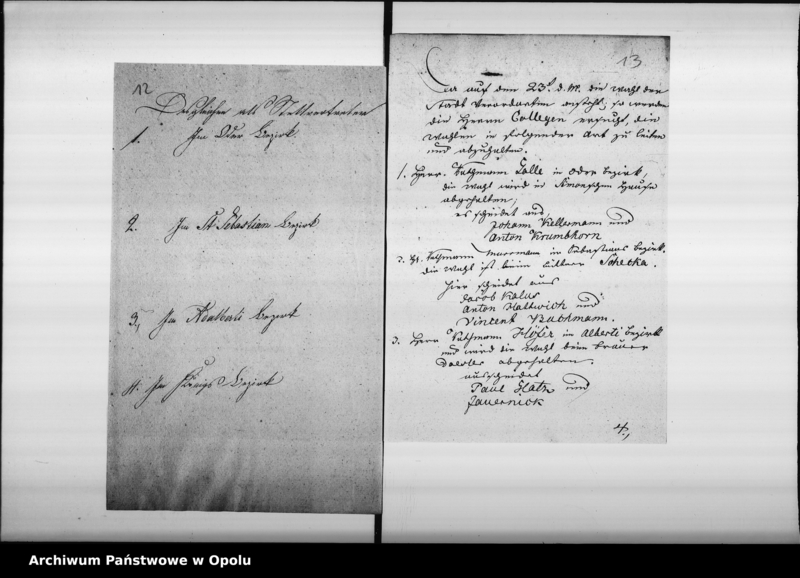 12
Desgleichen als Stellvertreter
1. Im Oder Bezirk.
2. Im St. Sebastian Bezirk
3, Im Adalberti Bezirk
4. Im Königs Bezirk
13
Da auf den 23t. d. M. die Wahl der
Stadt Verordneten ansteht, so werden
die Herrn Collegen ersucht, die
Wahlen in folgender Art zu leiten
und abzuhalten.
1. Herr Rathmann Galle in Oder Bezirk,
die Wahl wird im Hause
abgehalten;
es scheidet aus
Johann Kellermann und
Anton Krumbhorn
2. Hr. Rathmann in Sebastians Bezirk.
die Wahl ist beim Schetka.
hier scheidet aus
Jacob Kalus
Anton Hallwich und
Vincent Bachmann.
3. Herr Rathmann Höfer in Alberti Bezirk
und wird die Wahl beim Brauer
abgehalten.
ausscheidet
Paul und
Jauernick
4.,
Archiwum Państwowe w Opolu